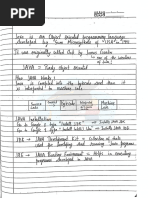 JAVA
Java is an Object oriented programming language
developed by "Sun Microsystems of "USA" in 1991
It was originally called Oak by James Goslin
one of the inventors
of Java
JAVA = Purely object oriented
How JAVA Works !
Java is Compiled into the bytecode and then it
is interpreted to machine code.
Source Code
Compiled
Bytecode
Interpreted
Machine Code
JAVA Installation
Go to Google & type "Install JDK" =>
Go to Google & type
JDK = Java Development Kit = Collection of tools
used for developing and running Java programs
JRE = JAVA Runtime Environment = Helps in executing
programs developed in JAVA